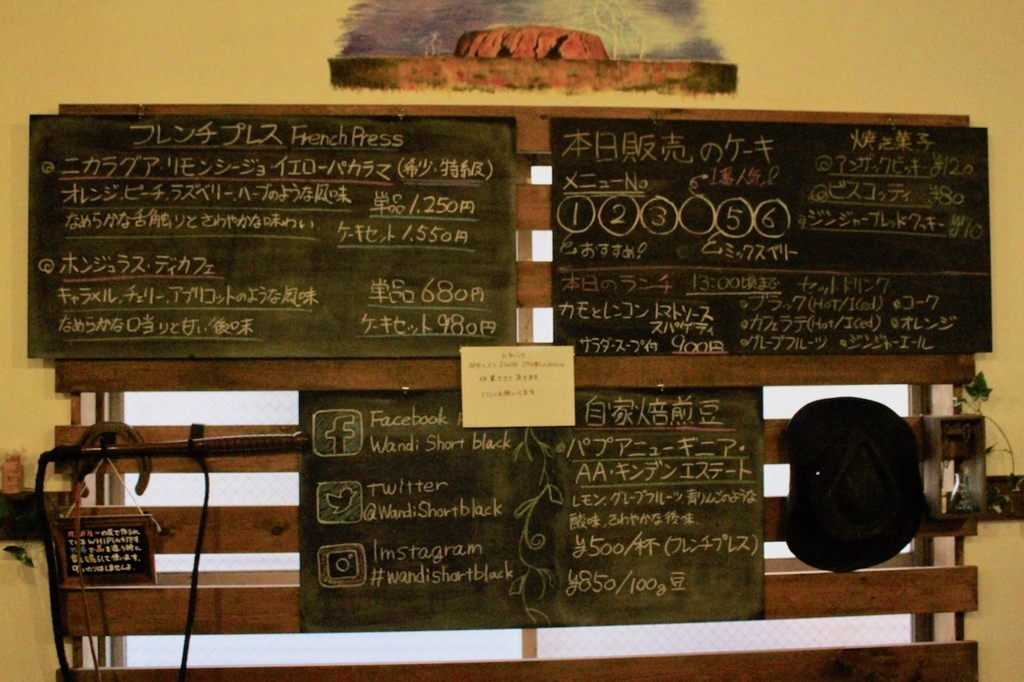 フレンチプレス French Press
ニカラグア・リモンシージョ イエローパカラマ (希少・特級)
オレンジ・ピーチ,ラズベリー・ハーブのような風味
なめらかな舌触りとさわやかな味わい
単品 1,250円
ケーキセット 1,550円
ホンジュラス・ディカフェ
キャラメル,チェリー,アプリコットのような風味
なめらかな口当りと甘い後味
単品 680円
ケーキセット 980円
本日販売のケーキ
メニューNo
1番人気!
① ② ③ ⑤ ⑥
おすすめ!
ミックスベリー
焼き菓子
アンザックビッキー ¥120
ビスコッティ ¥80
ジンジャーブレッドクッキー
本日のランチ 13:00頃まで
カモとレンコン トマトソース
スパゲティ
サラダ・スープ付 900円
セットドリンク
ブラック(Hot/Iced) コーク
カフェラテ(Hot/Iced) オレンジ
グレープフルーツ ジンジャーエール
お知らせ
休業させて頂きます
Facebook
Wandi Short black
Twitter
@WandiShortblack
Instagram
#wandishortblack
自家焙煎豆
パプアニューギニア・
AA・キンデンエステート
レモン,グレープフルーツ,青りんごのような
酸味,さわやかな後味.
¥500/杯(フレンチプレス)
¥850/100g豆